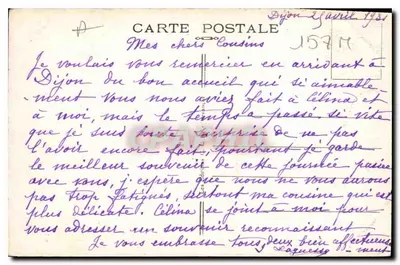 Dijon 2 avril 1931
CARTE POSTALE
157 M
Mes chers Cousins
Je voulais vous remercier en arrivant à
Dijon du bon accueil qui si aimable
ment vous nous aviez fait à Célina et
à moi, mais le temps a passé si vite
que je suis toute de ne pas
l'avoir encore fait, pourtant je garde
le meilleur souvenir de cette journée passée
avec vous, j'espère que nous ne vous aurons
pas trop fatigués, surtout ma cousine qui est
plus délicate. Célina se joint à moi pour
vous adresser un souvenir reconnaissant
Je vous embrasse tous deux bien affectueuse
ment